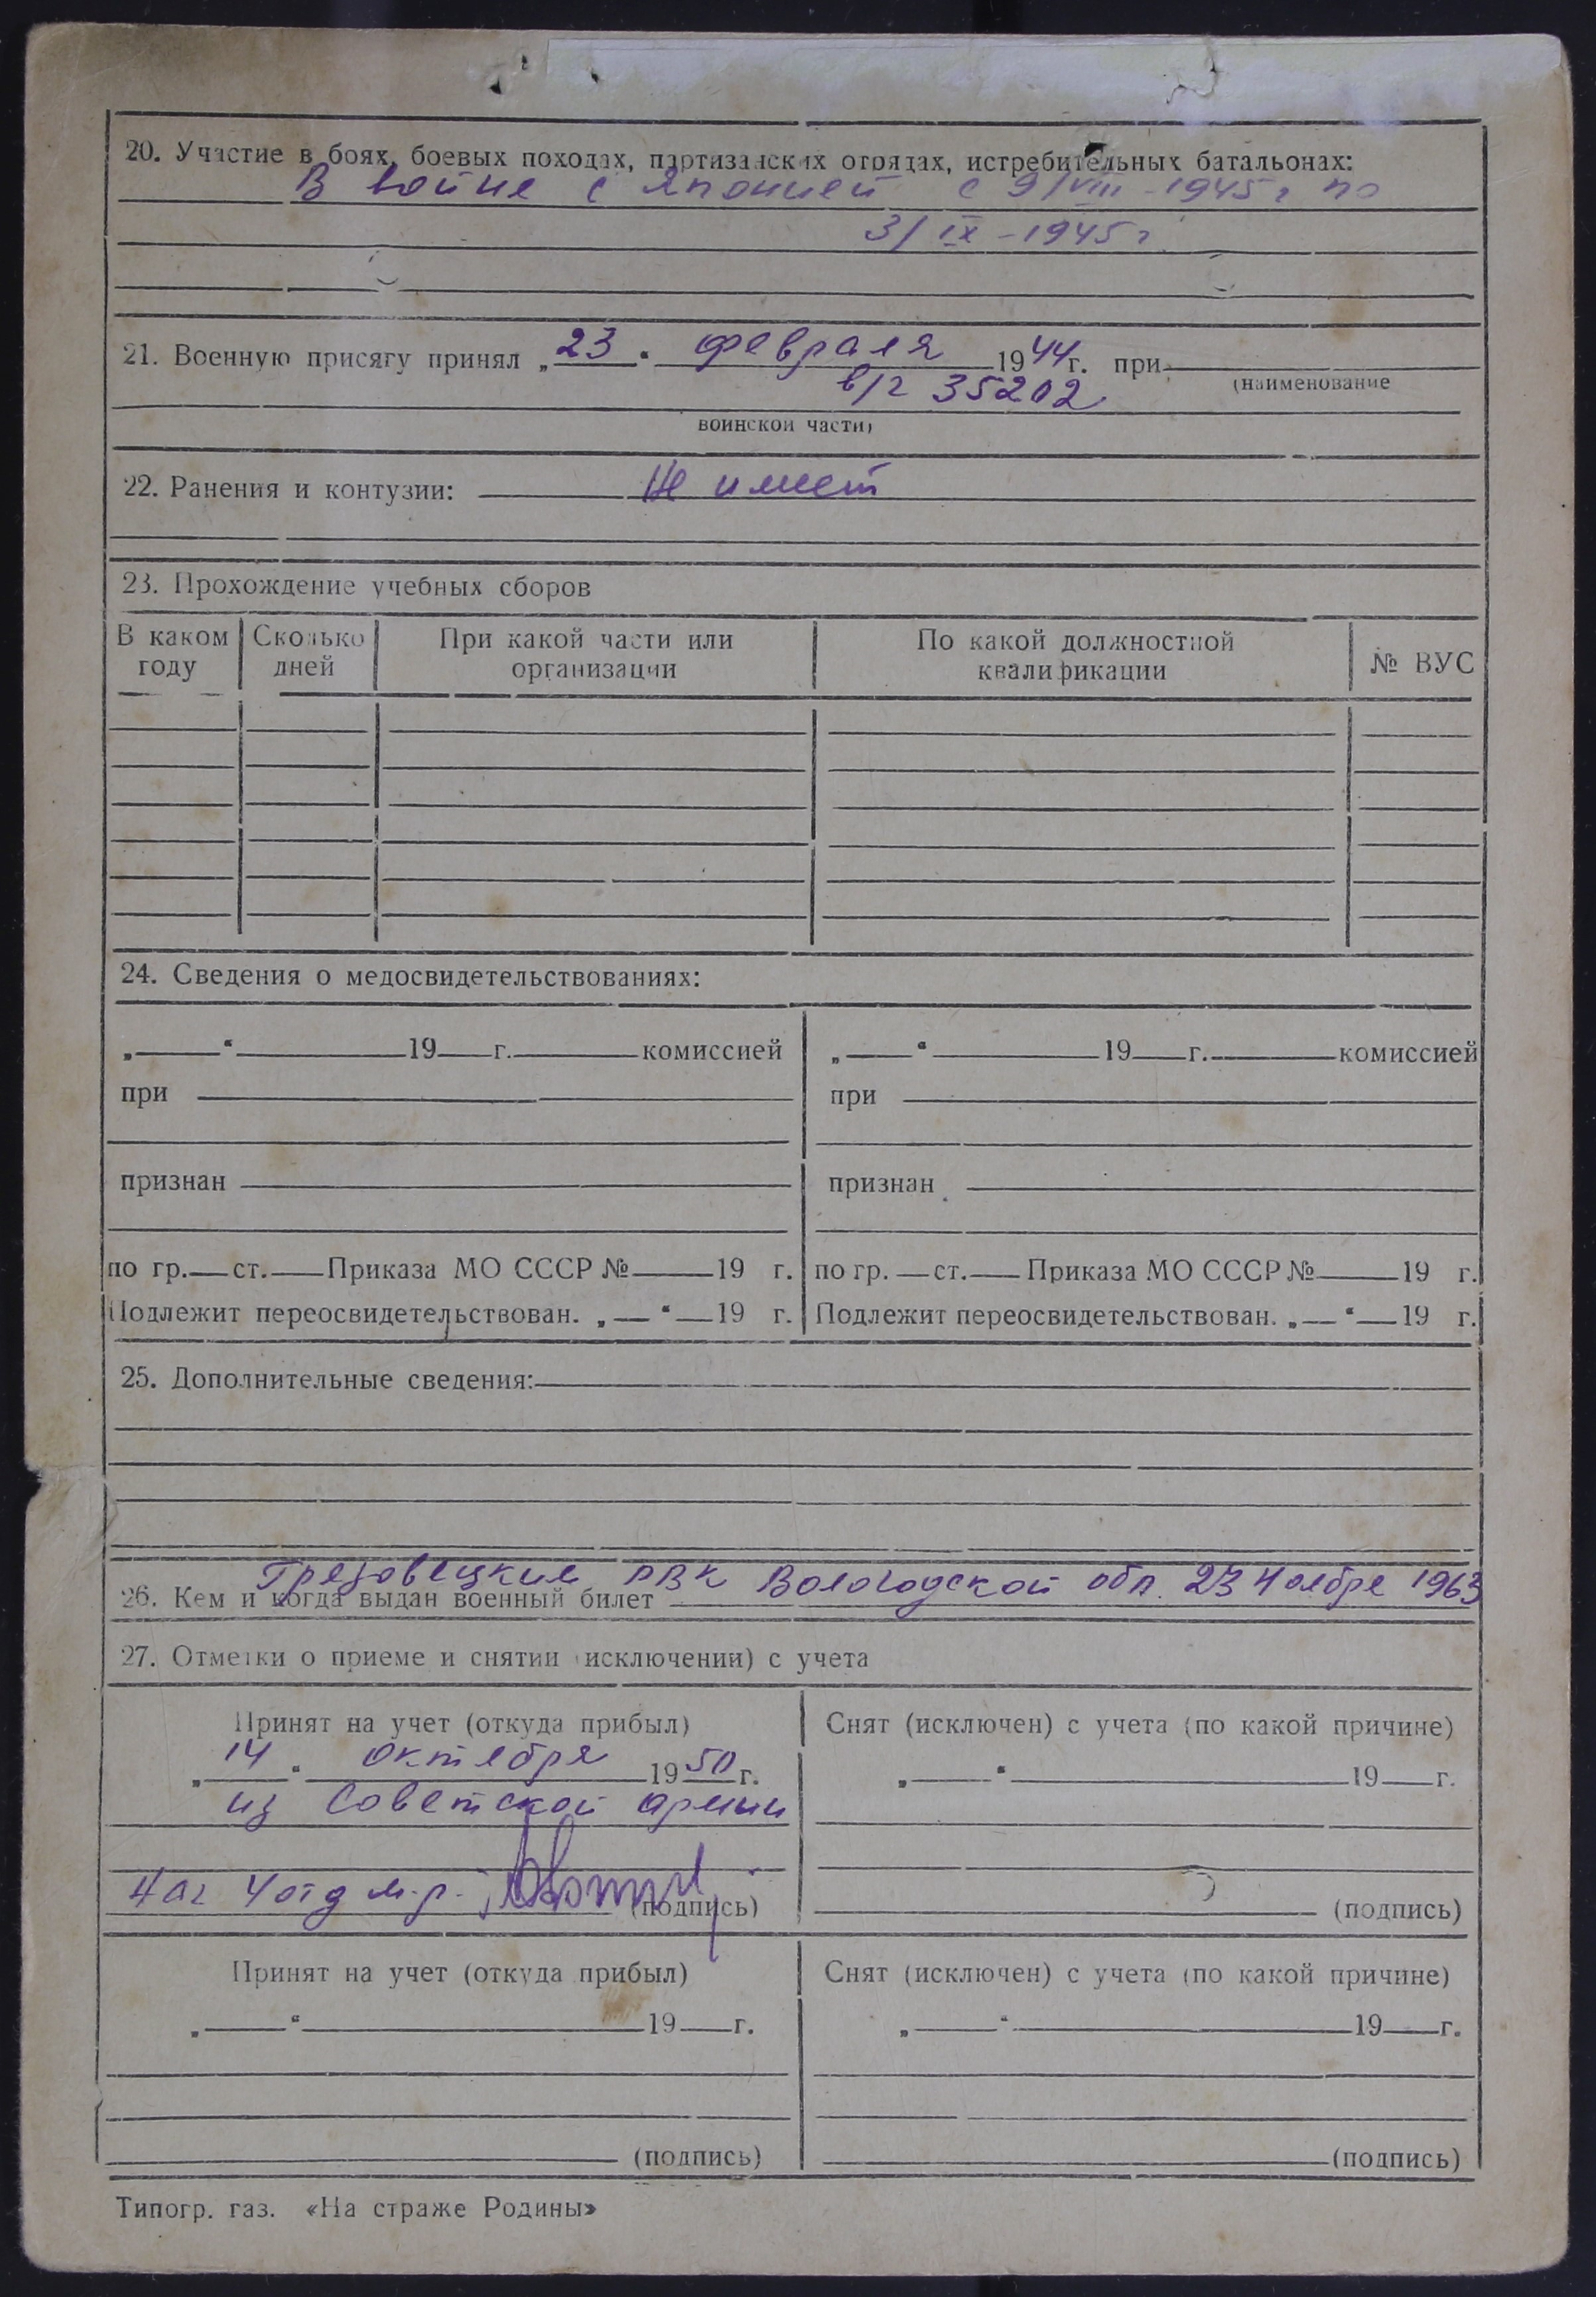 20. Участие в боях, боевых походах, партизанских отрядах, истребительных батальонах:
В войне с Японией с 9/VIII-1945г по
3/IX-1945г
21. Военную присягу принял „23“ февраля 1944г. при
(наименование
в/ч 35202
воинской части)
22. Ранения и контузии: Не имеет
23. Прохождение учебных сборов
В каком году Сколько дней При какой части или организации По какой должностной квалификации № ВУС
24. Сведения о медосвидетельствованиях:
„ “ 19 г. комиссией „ “ 19 г. комиссией
при при
признан признан
по гр. ст. Приказа МО СССР № 19 г. по гр. ст. Приказа МО СССР № 19 г.
Подлежит переосвидетельствован. „ “ 19 г. Подлежит переосвидетельствован. „ “ 19 г.
25. Дополнительные сведения:
Грязовецким РВК Вологодской обл. 23 Ноября 1963
26. Кем и когда выдан военный билет
27. Отметки о приеме и снятии (исключении) с учета
Принят на учет (откуда прибыл) Снят (исключен) с учета (по какой причине)
„14“ октября 1950г. „ “ 19 г.
из Советской армии
Нач 4 отд м.р. (подпись) (подпись)
Принят на учет (откуда прибыл) Снят (исключен) с учета (по какой причине)
„ “ 19 г. „ “ 19 г.
(подпись) (подпись)
Типогр. газ. «На страже Родины»